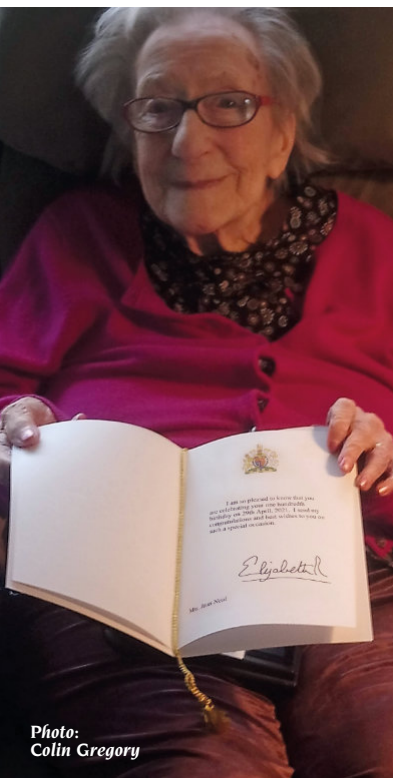 I am so pleased to know that you
are celebrating your one hundredth
birthday on 29th April, 2021. I send my
congratulations and best wishes to you on
such a special occasion.
Elizabeth R
Mrs.
Photo:
Colin Gregory